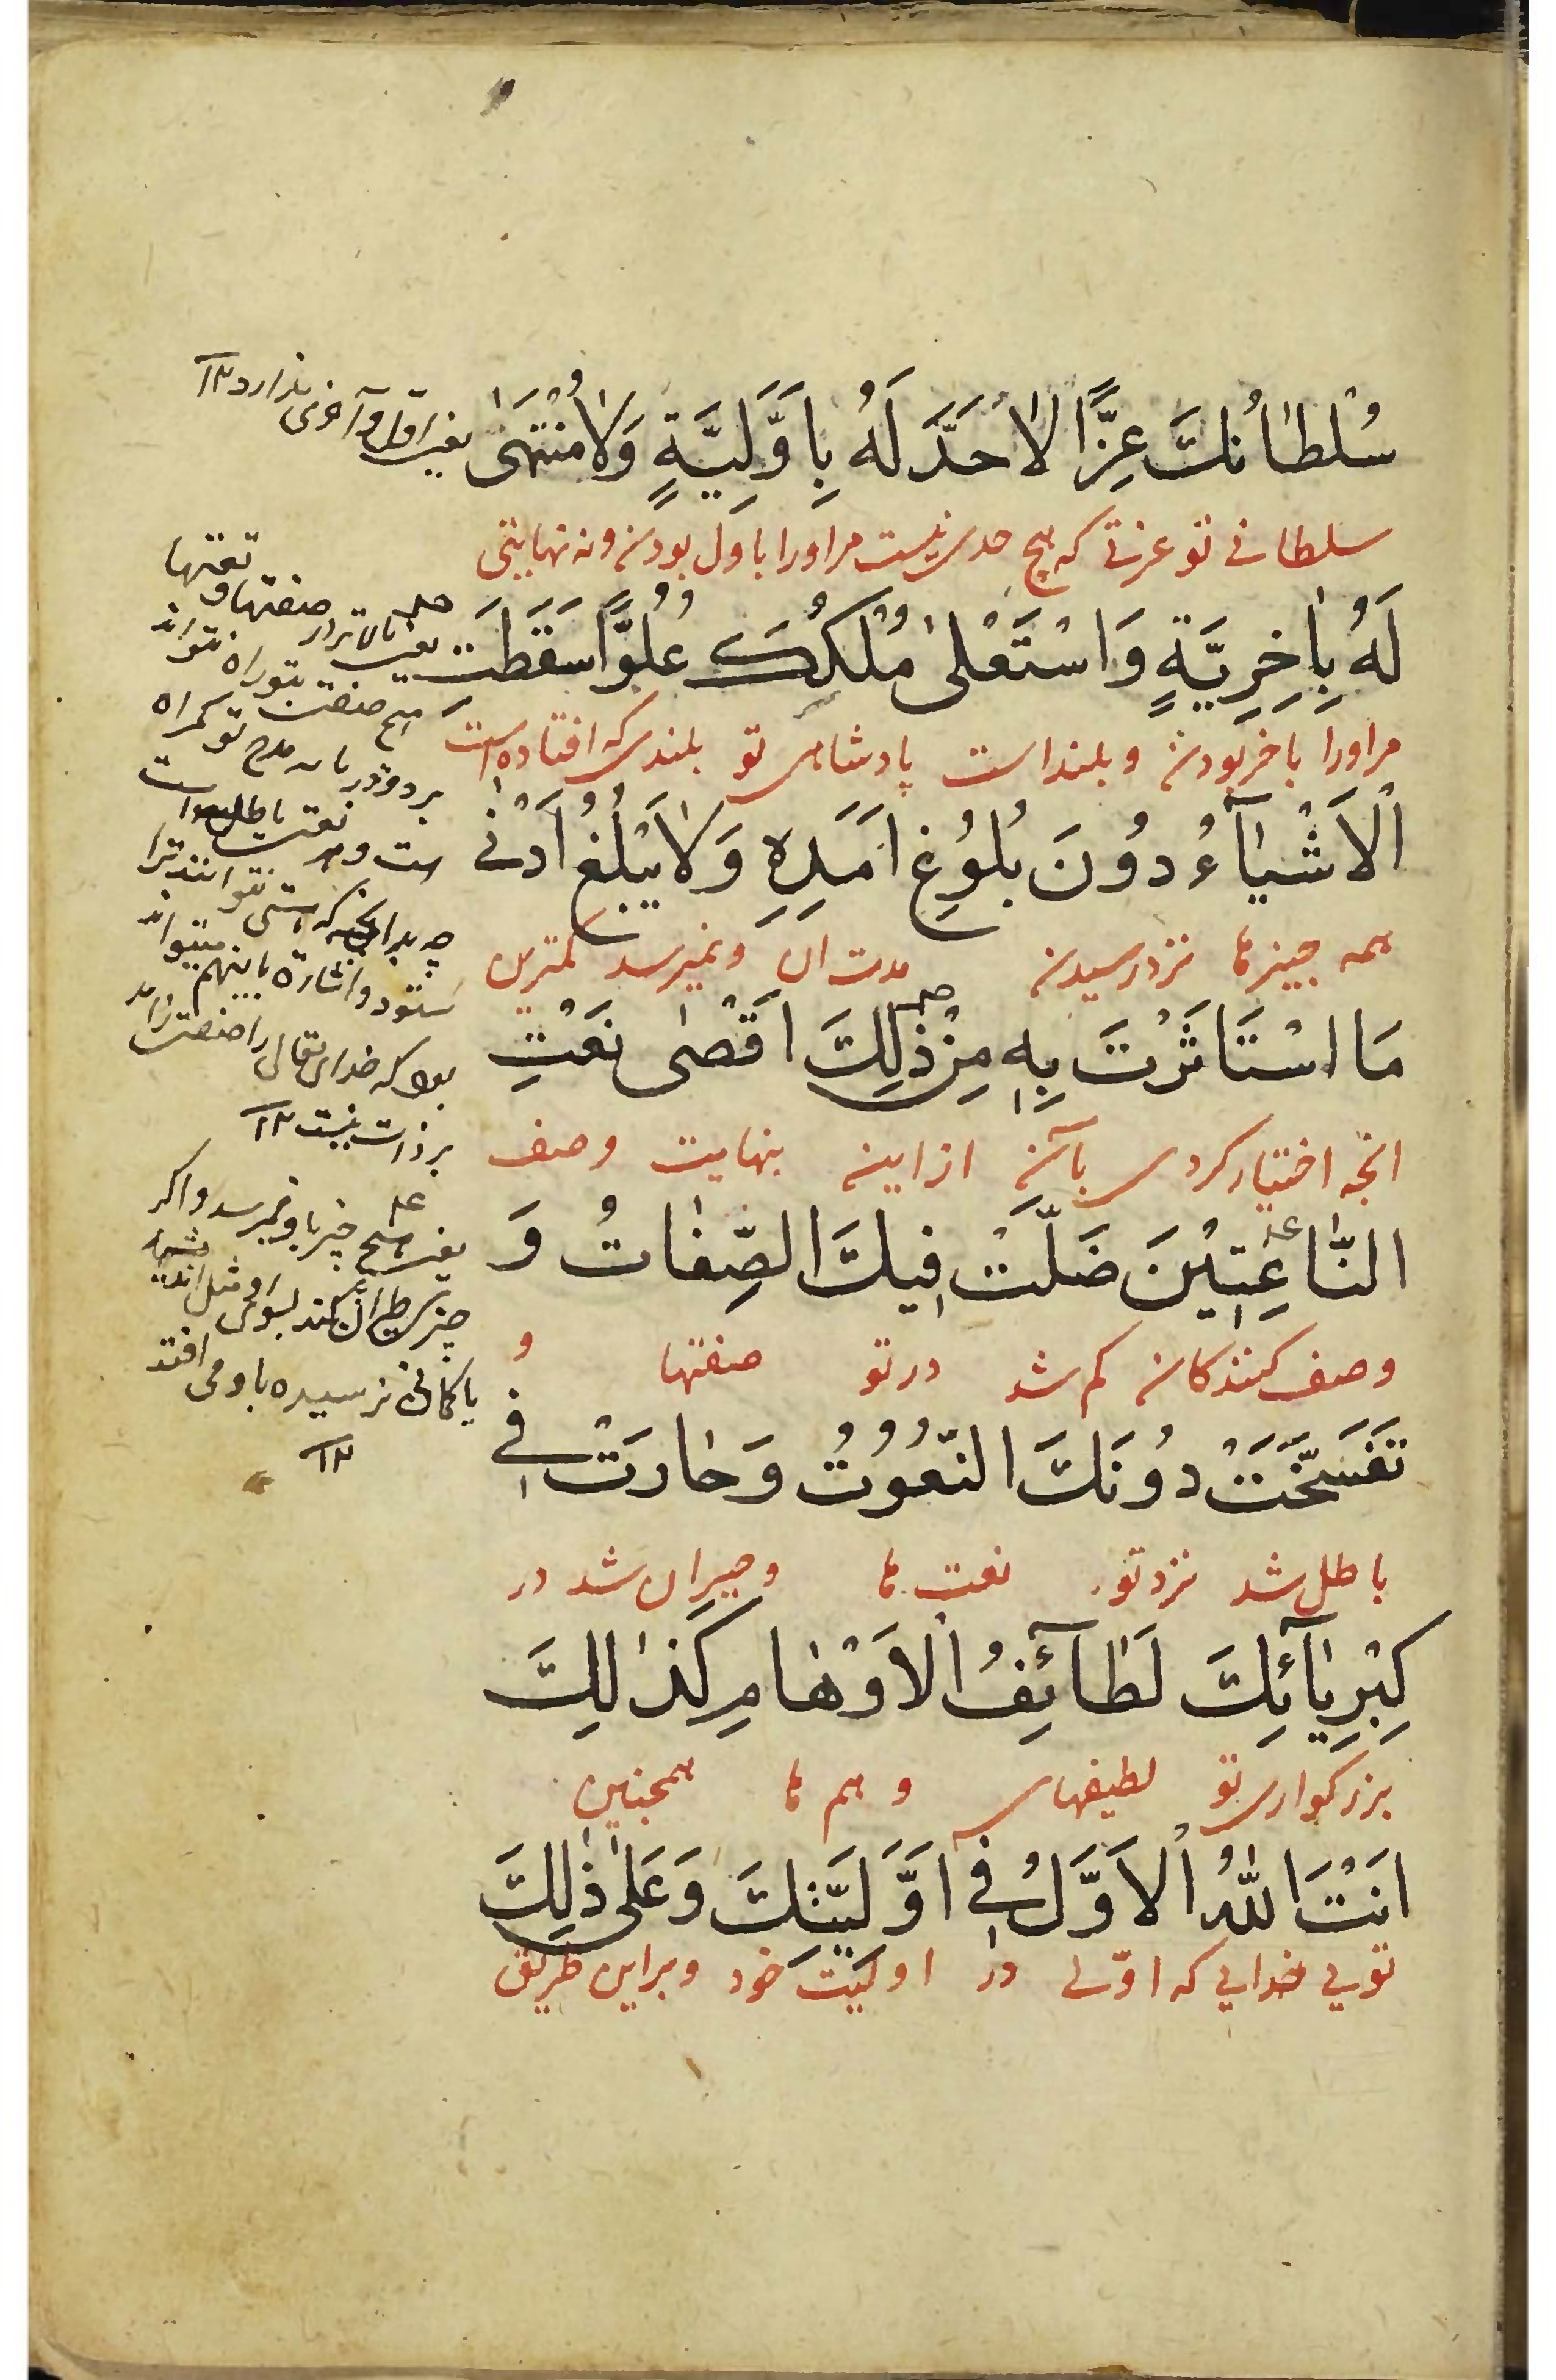 سُلْطَانُكَ عِزًّا لَا حَدَّ لَهُ بِاَوَّلِيَّةٍ وَلَا مُنْتَهٰى
سلطانی تو عزتی که هیچ حدی نیست مر اورا باول بودن ونه نهایتی
لَهُ بِاٰخِرِيَّةٍ وَاسْتَعْلٰى مُلْكُكَ عُلُوًّا سَقَطَتِ
مر اورا باخر بودن وبلند است پادشاهی تو بلندی که افتاده است
الْاَشْيَآءُ دُونَ بُلُوغِ اَمَدِهِ وَلَا يَبْلُغُ اَدْنٰى
همه چیزها نزد رسیدن مدت ان ونمیرسد کمترین
مَا اسْتَاثَرْتَ بِهِ مِنْ ذٰلِكَ اَقْصٰى نَعْتِ
انچه اختیار کردی بآن از این بنهایت وصف
النَّاعِتِيْنَ ضَلَّتْ فِيكَ الصِّفَاتُ وَ
وصف کنندکان کم شد در تو صفتها و
تَفَسَّخَتْ دُونَكَ النُّعُوْتُ وَحَارَتْ فِي
باطل شد نزد تو نعت ها وحیران شد در
كِبْرِيَآئِكَ لَطَآئِفُ الْاَوْهَامِ كَذٰلِكَ
بزرکواری تو لطیفهای وهم ها همچنین
اَنْتَ اللّٰهُ الْاَوَّلُ فِي اَوَّلِيَّتِكَ وَعَلٰى ذٰلِكَ
تویی خدایی که اوّلی در اولیّت خود وبراین طریق
یعنی اوّل وآخری ندارد ۱۲
یعنی بالاتر از صفتها و نعتها
هیچ صفت بتو راه نتواند
برد و در مدح تو کمراه
است و نعت باطل است
چه بدانچه که نتوانند ترا
ستود واشاره باینهم میتواند
بود که خدای تعالی را صفت زاید
بر ذات نیست ۱۲
یعنی هیچ چیز باو نمیرسد واکر
او مثل
نرسیده باو می افتد
۱۲